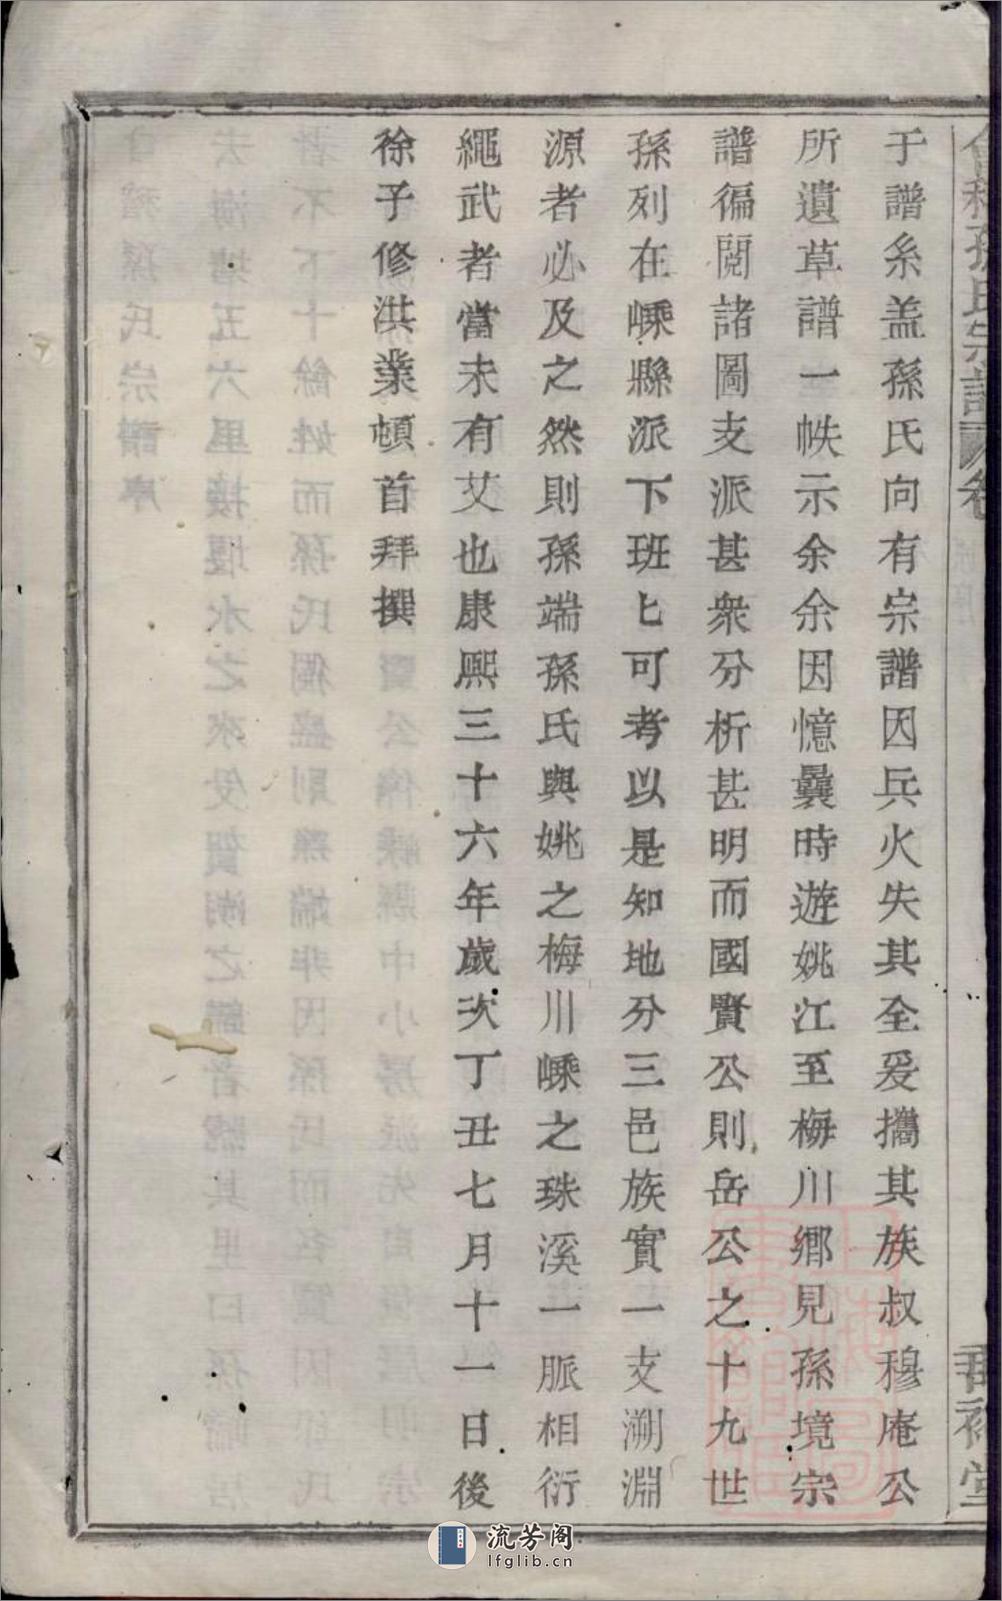 孫氏宗譜 卷
于譜系盖孫氏向有宗譜因兵火失其全爰攜其族叔穆庵公
所遺草譜一帙示余余因憶曩時遊姚江至梅川鄉見孫境宗
譜徧閱諸圖支派甚衆分析甚明而國賢公則岳公之十九世
孫列在嵊縣派下班匕可考以是知地分三邑族實一支溯淵
源者必及之然則孫端孫氏與姚之梅川嵊之珠溪一脈相衍
繩武者當未有艾也康熙三十六年歲次丁丑七月十一日後
徐子修洪業頓首拜撰
流芳阁
lfglib.cn